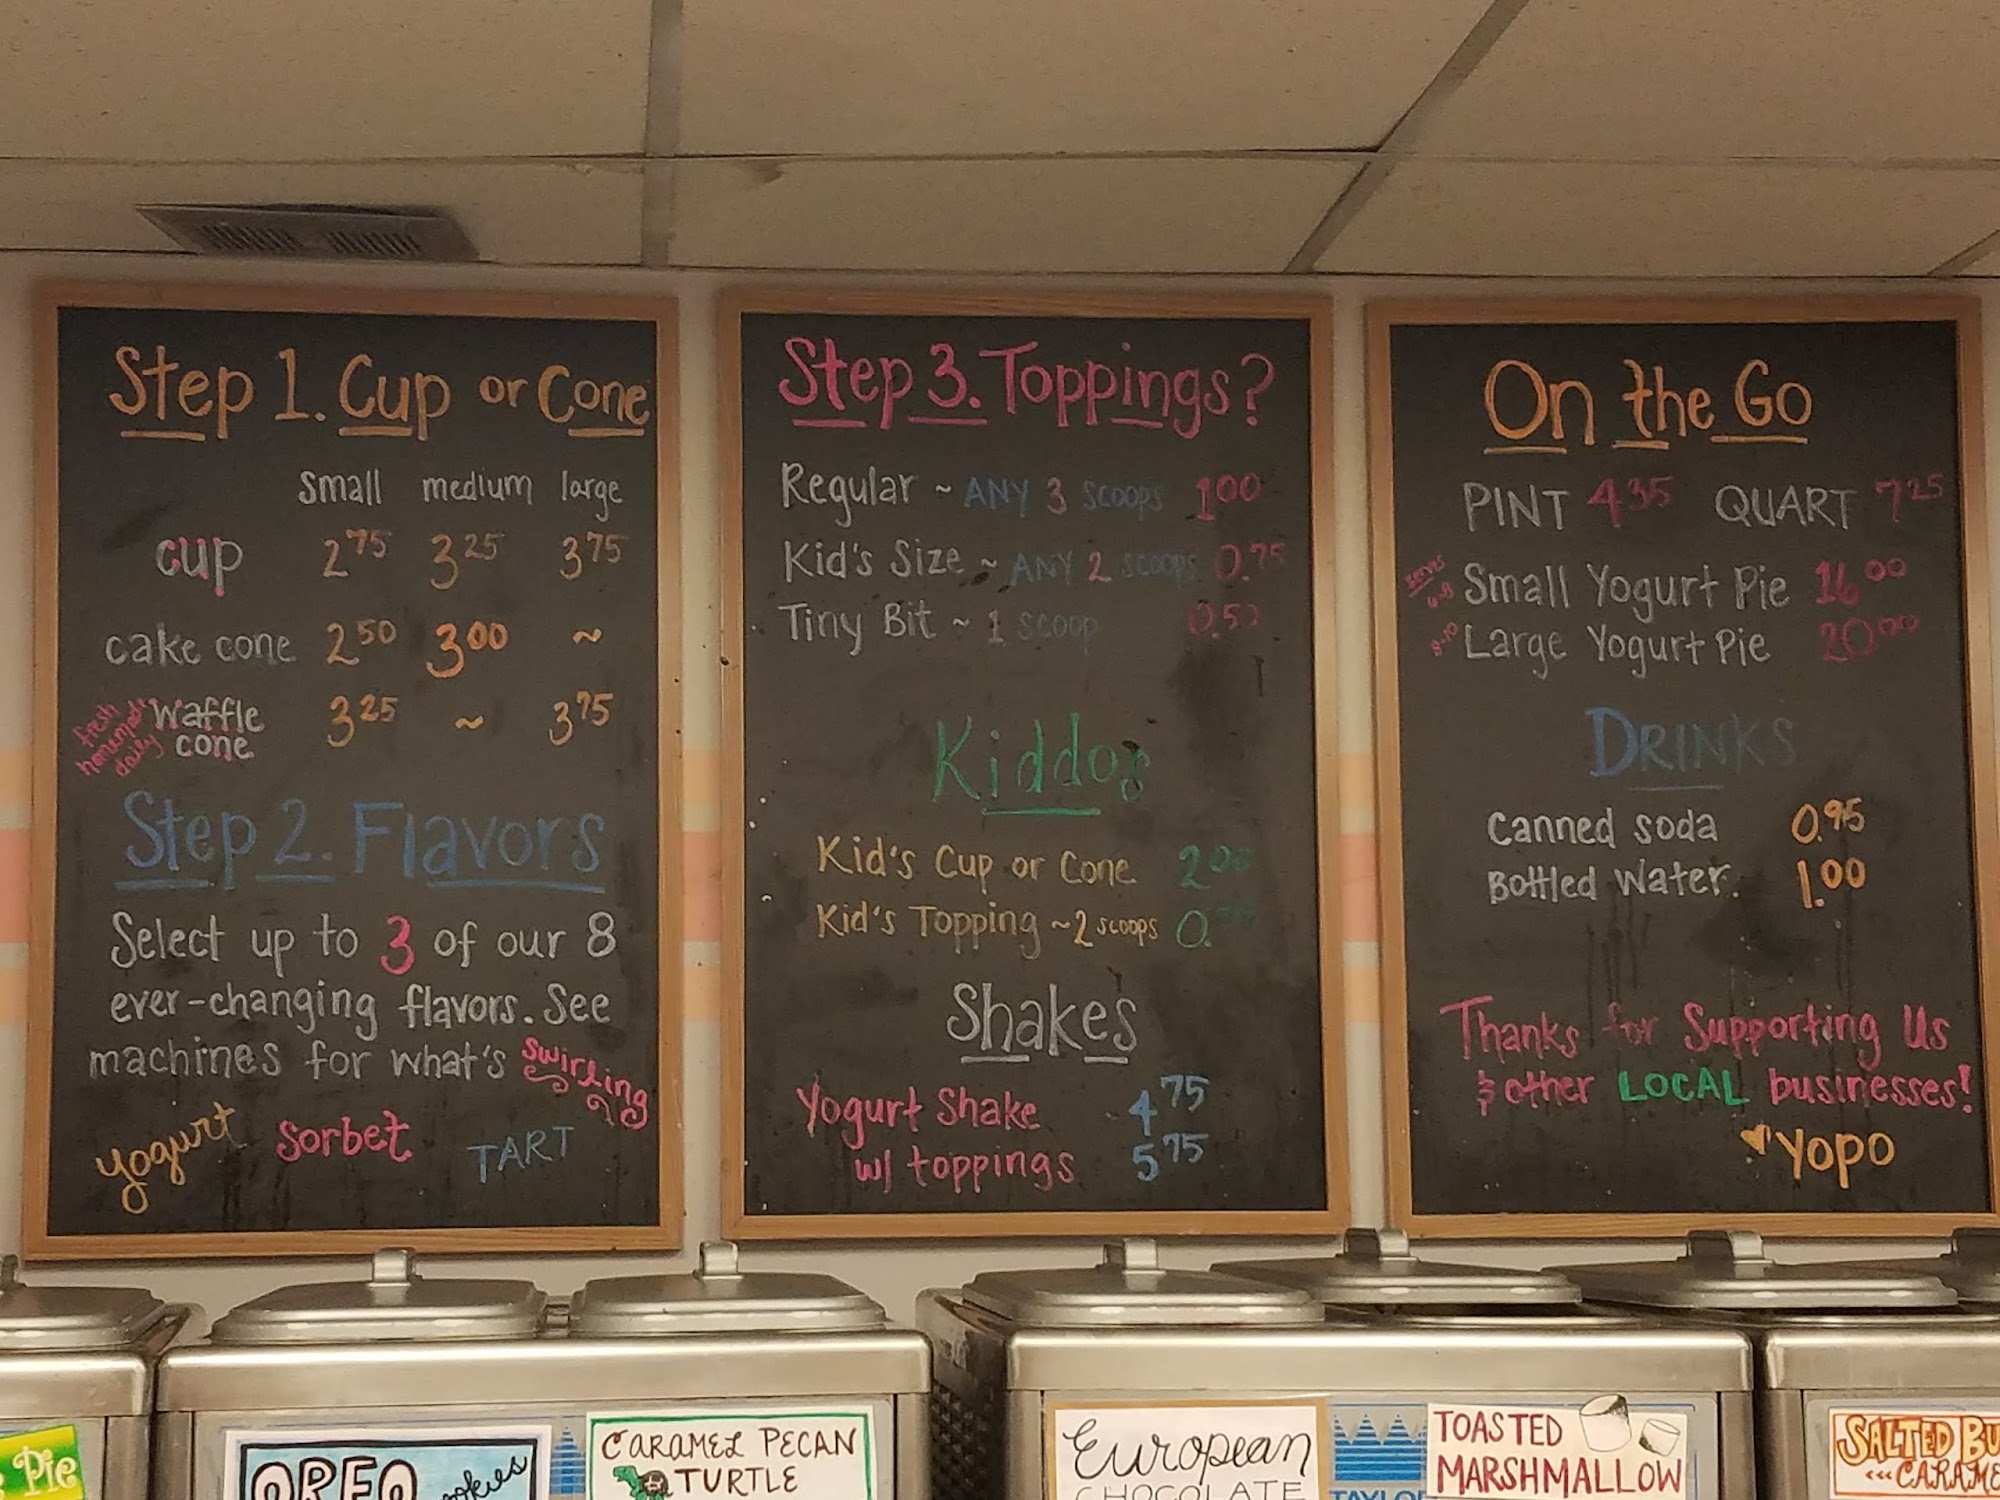 Step 1. Cup or Cone
small medium large
cup 2.75 3.25 3.75
cake cone 2.50 3.00 ~
fresh homemade daily
Waffle cone 3.25 ~ 3.75
Step 2. Flavors
Select up to 3 of our 8
ever-changing flavors. See
machines for what's swirling
yogurt sorbet TART
Step 3. Toppings?
Regular ~ ANY 3 scoops 1.00
Kid's Size ~ ANY 2 scoops 0.75
Tiny Bit ~ 1 scoop 0.50
Kiddos
Kid's Cup or Cone 2.00
Kid's Topping ~ 2 scoops
Shakes
Yogurt Shake 4.75
w/ toppings 5.75
On the Go
PINT 4.35 QUART 7.25
serves 6-8 Small Yogurt Pie 16.00
8-10 Large Yogurt Pie 20.00
DRINKS
Canned soda 0.95
Bottled Water. 1.00
Thanks for Supporting Us
& other LOCAL businesses!
YOPO
Pie
OREO
CARAMEL PECAN
TURTLE
European
CHOCOLATE
TAYLOR
TOASTED
MARSHMALLOW
SALTED